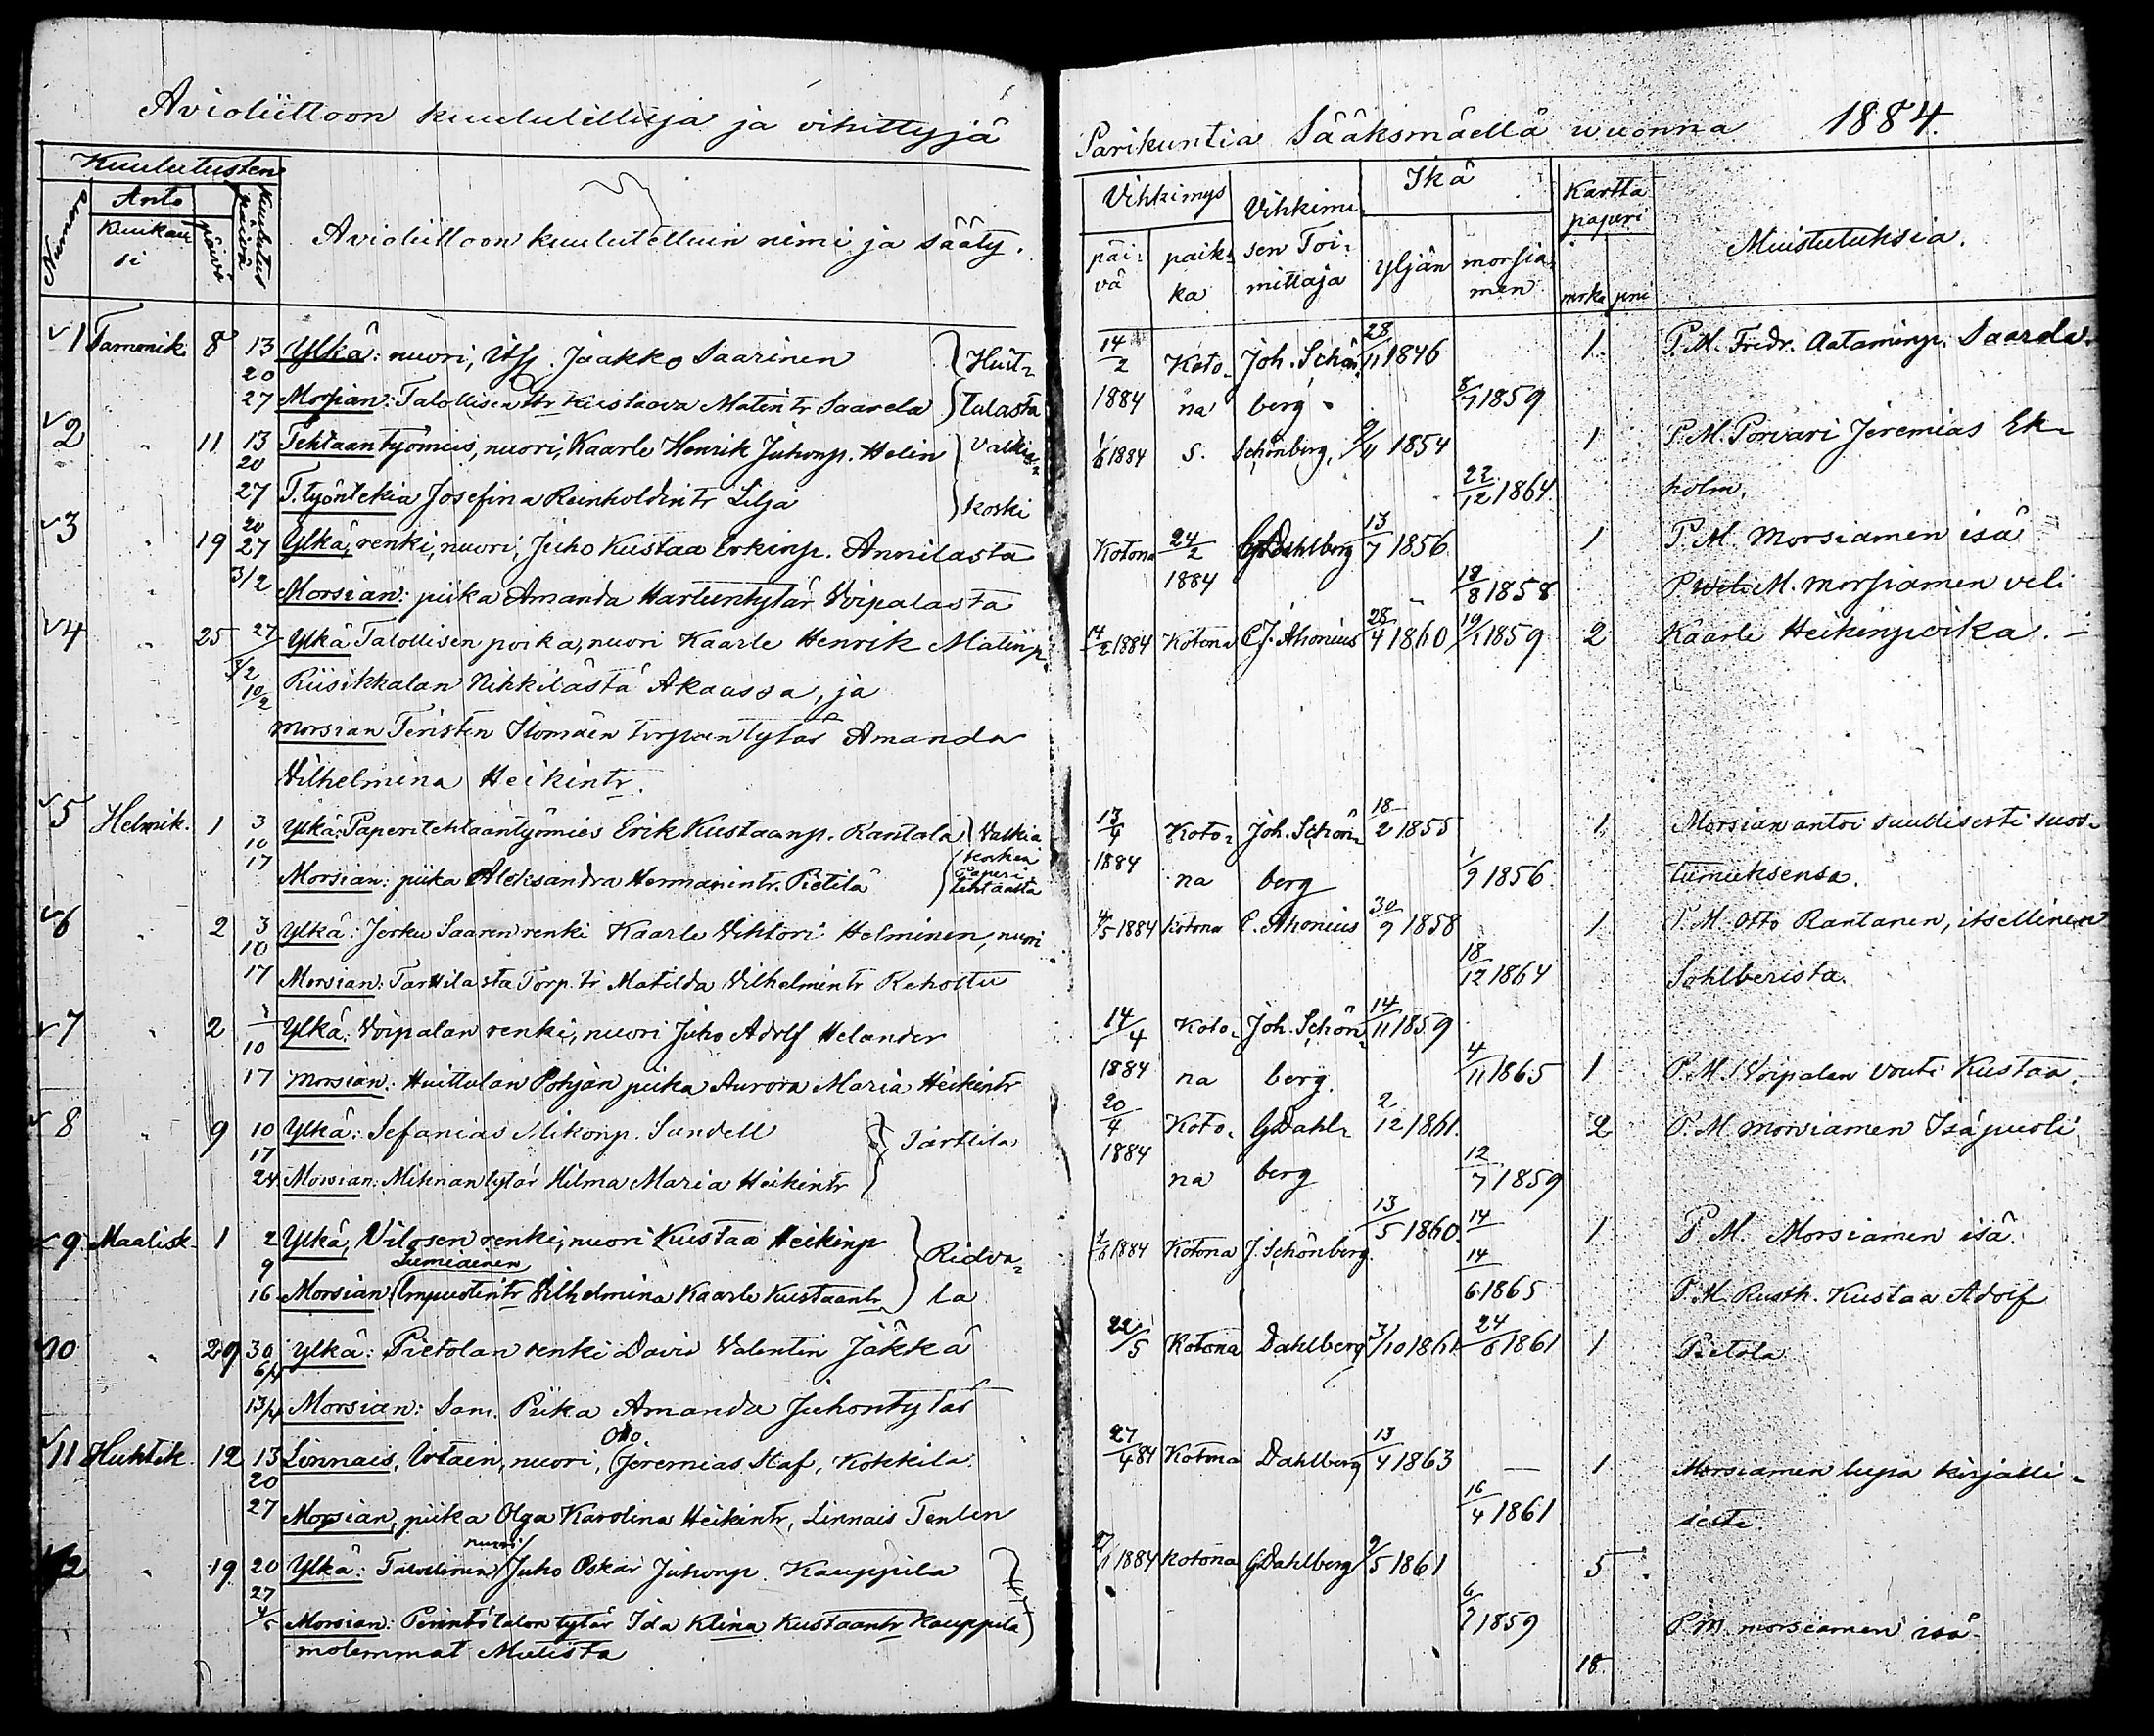 Avioliittoon kuulutettuja ja vihittyjä
Kuulutusten
Numero
Anto
Kuukausi
päivä
Kuulutus päivä
Avioliittoon kuulutettuin nimi ja sääty.
1 Tammik. 8 13 Ylkä: nuori, Itsll. Jaakko Saarinen Huit-
20
27 Morsian: Talollisen tr Kustaava Matintr Saarela tulasta
2 " 11 13 Tehtaan työmies, nuori, Kaarle Henrik Juhonp. Helin Valkia-
20
27 T. työntekiä Josefina Reinholdintr Lilja koski
3 " 19 20
27 Ylkä, renki, nuori, Juho Kustaa Erkinp. Annilasta
3/2 Morsian: piika Amanda tytär Voipalasta
4 " 25 27 Ylkä Talollisen poika, nuori Kaarle Henrik Matinp.
3/2
10/2 Riisikkalan Nikkilästä Akaassa, ja
morsian Teristen Ilomäen torpan tytär Amanda
Vilhelmina Heikintr.
5 Helmik. 1 3 Ylkä: Paperitehtaantyömies Erik Kustaanp. Rantala Valkia
10 kosken
17 Morsian: piika Aleksandra Hermanintr. Pietilä Paperi tehtaasta
6 " 2 3 Ylkä: Jerku Saaren renki Kaarle Vihtori Helminen, nuori
10
17 Morsian: Tarttilasta Torp. tr Matilda Vilhelmintr Rekottu
7 " 2 Ylkä: Voipalan renki, nuori Juho Adolf Helander
10
17 morsian: Huittulan Pohjan piika Aurora Maria Heikintr
8 " 9 10 Ylkä: Sefanias Mikonp. Sundell Tarttila
17
24 Morsian: tytär Hilma Maria Heikintr
9 Maalisk. 1 2 Ylkä, Vilosen renki, nuori Kustaa Heikinp Ridva-
9
16 Morsian Vilhelmina Kaarle Kustaantr la
10 " 29 30 Ylkä: Pietolan renki David Valentin Jäkkä
6/4
13/4 Morsian: Sam. Piika Amanda Juhontytär
Otto
11 Huhtik. 12 13 Linnais, nuori, Jeremias Staf, Kokkila
20
27 Morsian, piika Olga Karolina Heikintr, Linnais
nuori
12 " 19 20 Ylkä: Talollinen Juho Oskar Juhonp. Kauppila
27
4/5 Morsian: Perintötalon tytär Ida Klina Kustaantr Kauppila
molemmat Metsästä
Parikuntia Sääksmäellä wuonna 1884.
Vihkimys
päivä
paikka
Vihkimisen Toimittaja
Ikä
Yljän
morsiamen
Kartta paperi
mrka pni
Muistutuksia.
14/2 Koto- Joh. Schön- 28/11 1846 1 P.M. Fredr. Aataminp. Saarela.
1884 na berg 8/7 1859
1/6 1884 S. Schönberg, 9/11 1854 1 P.M. Porvari Jeremias Ek-
22/12 1864 holm.
Kotona 24/2 G Dahlberg 13/7 1856 1 P.M. Morsiamen isä
1884 18/8 1858 P. M. morsiamen veli
14/2 1884 Kotona C J. Ahonius 28/4 1860 19/1 1859 2 Kaarle Heikinpoika.
13/4 Koto- Joh. Schön- 18/2 1855 1 Morsian antoi suullisesti suos-
1884 na berg 1/9 1856 tumuksensa.
4/5 1884 Kotona C. Ahonius 30/9 1858 1 P.M. Otto Rantanen, itsellinen
18/12 1864 Sohlberista.
14/4 Koto- Joh. Schön- 14/11 1859
1884 na berg. 4/11 1865 1 P.M. Voipalan Vouti Kustaa.
20/4 Koto- G Dahl- 2/12 1861. 2 P.M. morsiamen Isäpuoli
1884 na berg 12/7 1859
1884 Kotona J. Schönberg. 13/5 1860. 14 1 P.M. Morsiamen isä.
14/6 1865 P.M. Rusth. Kustaa Adolf
22/5 Kotona Dahlberg 3/10 1861 24/6 1861 1 Pietola
27/4 84 Kotona Dahlberg 13/4 1863 — 1 Morsiamen lupa kirjalli-
16/4 1861 sesti.
1884 Kotona G Dahlberg 9/5 1861 5
6/7 1859 P.M. morsiamen isä.
18.